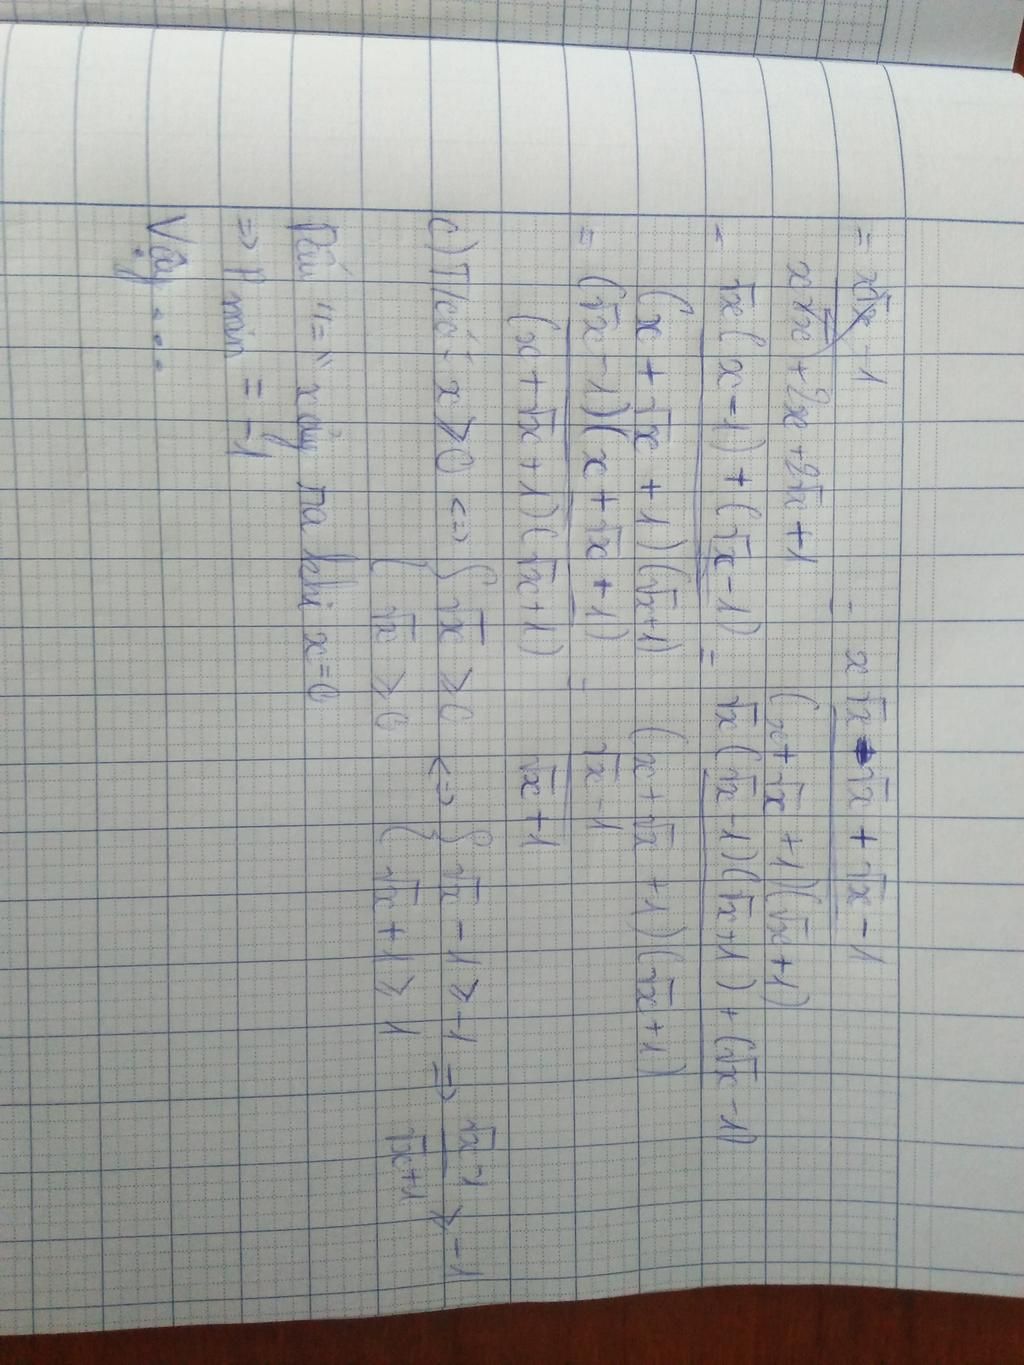 = x√x - 1 / x√x + 2x + 2√x + 1 = x√x - √x + √x - 1 / (x + √x + 1)(√x + 1)
= √x(x - 1) + (√x - 1) / (x + √x + 1)(√x + 1) = √x(√x - 1)(√x + 1) + (√x - 1) / (x + √x + 1)(√x + 1)
= (√x - 1)(x + √x + 1) / (x + √x + 1)(√x + 1) = √x - 1 / √x + 1
c) T/có: x ≥ 0 <=> { √x ≥ 0 ; √x ≥ 0 <=> { √x - 1 ≥ -1 ; √x + 1 ≥ 1 => √x - 1 / √x + 1 ≥ -1
Dấu "=" xảy ra khi x = 0
=> P min = -1
Vậy ...